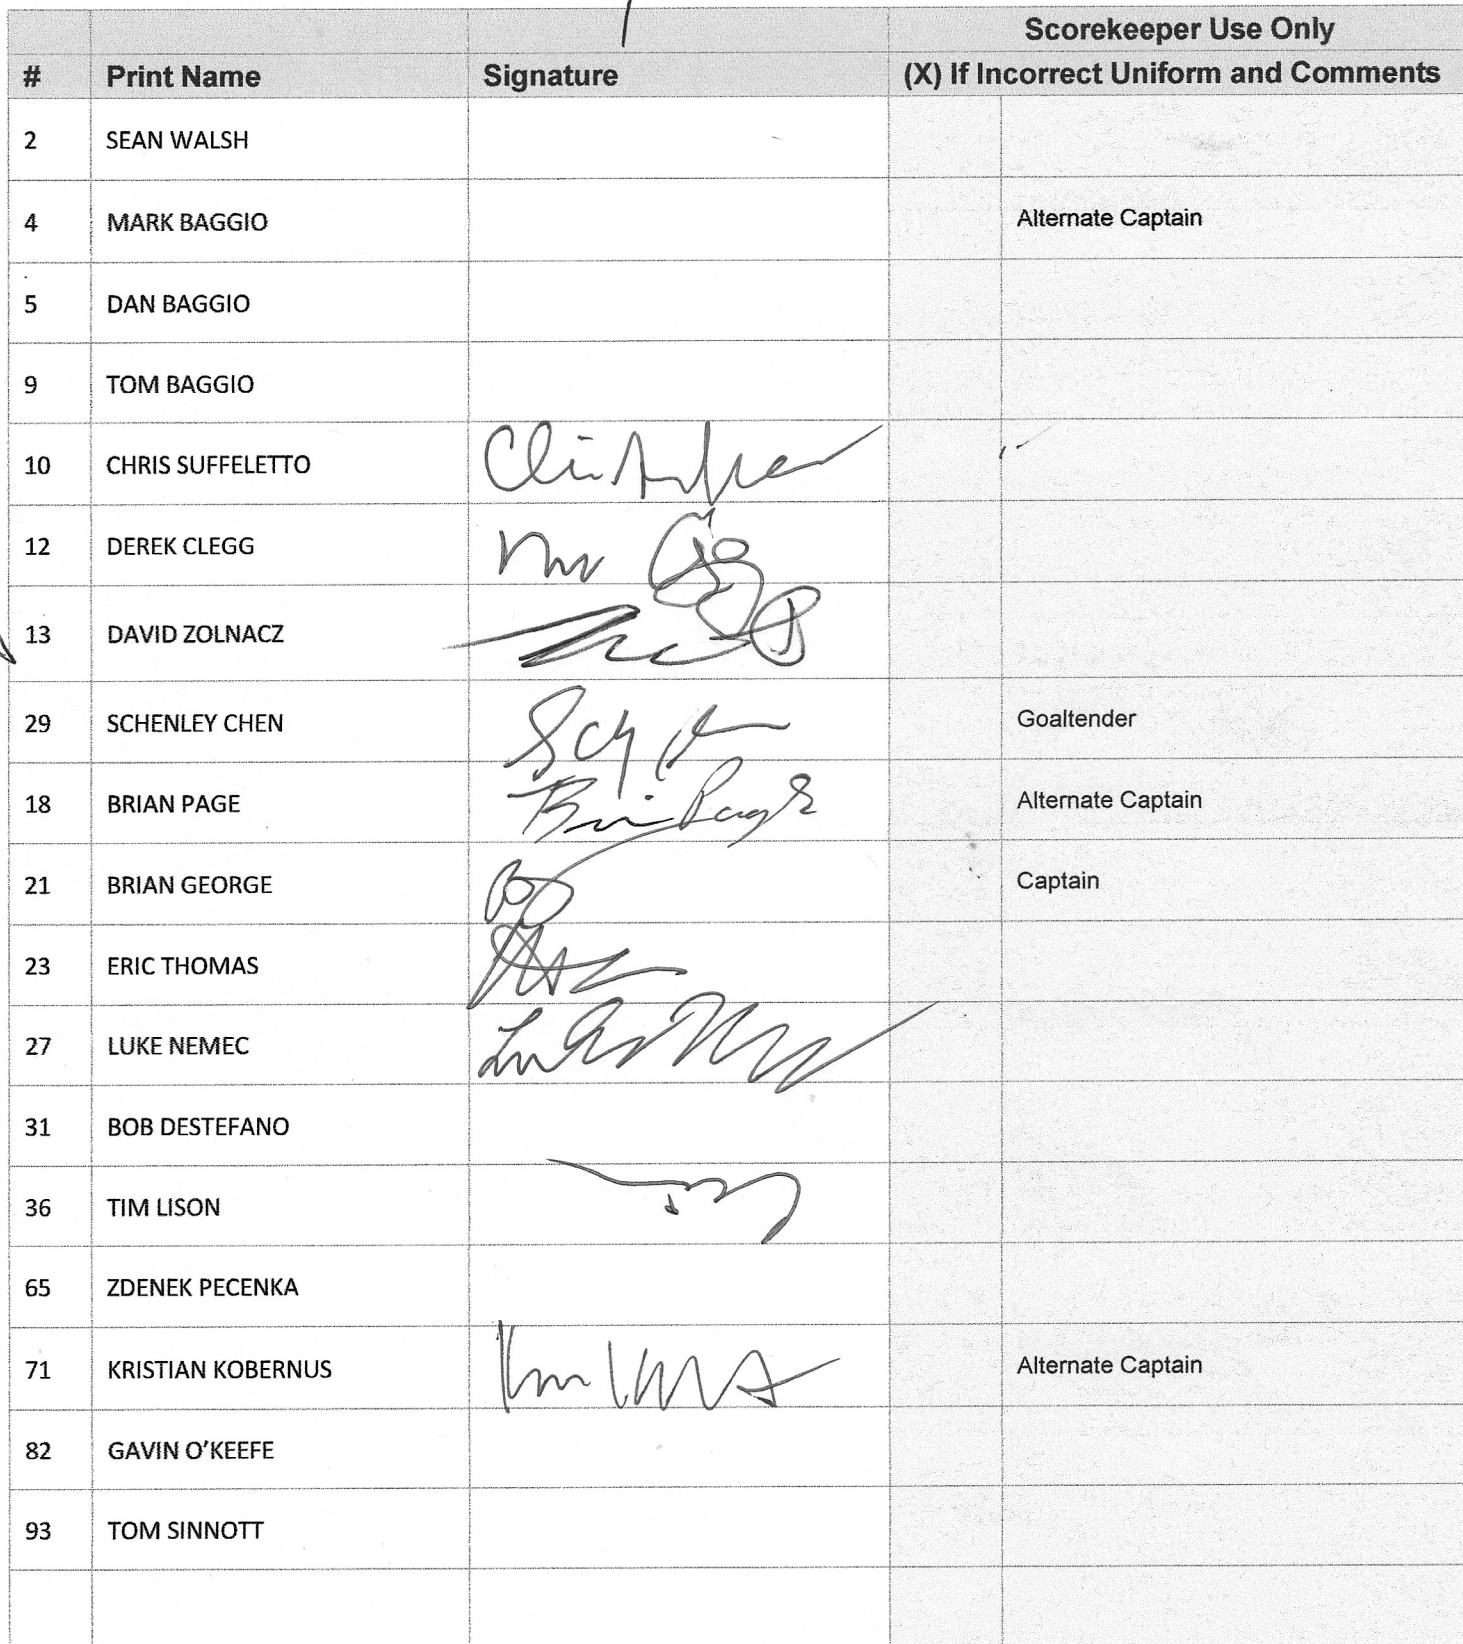 Scorekeeper Use Only
# Print Name Signature (X) If Incorrect Uniform and Comments
2 SEAN WALSH
4 MARK BAGGIO Alternate Captain
5 DAN BAGGIO
9 TOM BAGGIO
10 CHRIS SUFFELETTO
12 DEREK CLEGG
13 DAVID ZOLNACZ
29 SCHENLEY CHEN Goaltender
18 BRIAN PAGE Brian Page Alternate Captain
21 BRIAN GEORGE Captain
23 ERIC THOMAS
27 LUKE NEMEC
31 BOB DESTEFANO
36 TIM LISON
65 ZDENEK PECENKA
71 KRISTIAN KOBERNUS Alternate Captain
82 GAVIN O'KEEFE
93 TOM SINNOTT